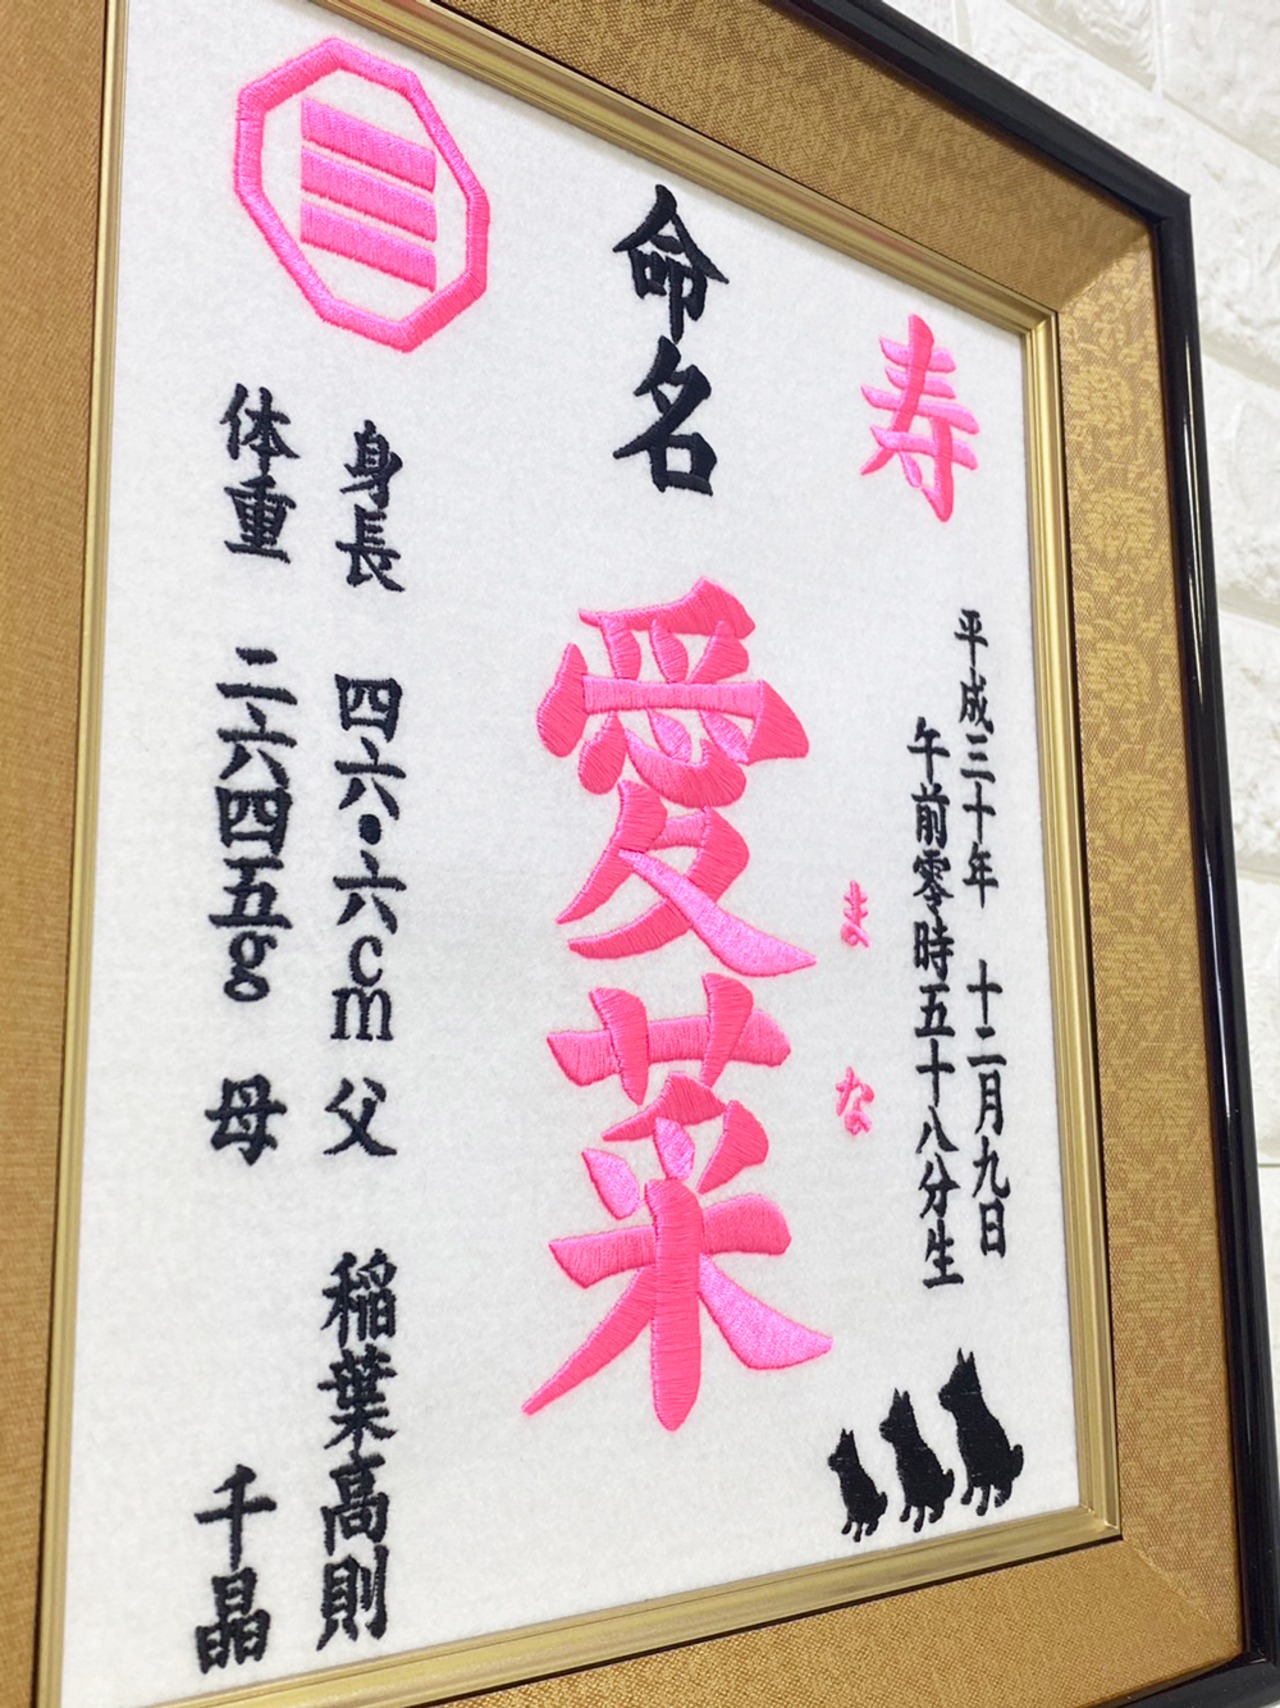 寿
平成三十年 十二月九日
午前零時五十八分生
命名 愛菜
まな
身長 四六・六cm 父 稲葉高則
体重 二六四五g 母 千晶